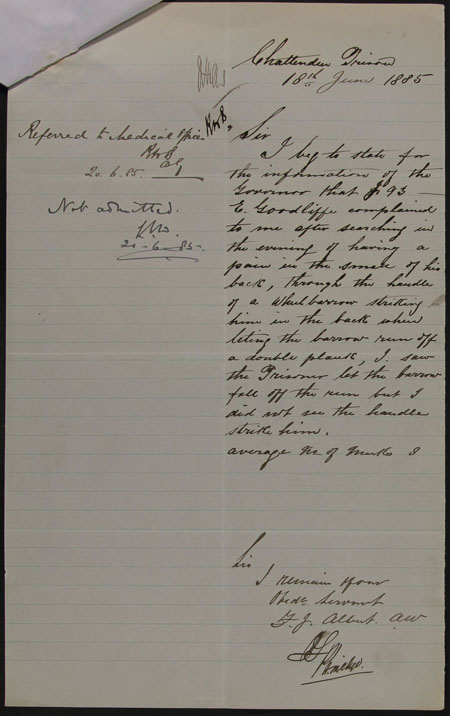 Chattenden Prison
18th June 1885
Referred to Medical Officer
20.6.85.
Not admitted.
20-6-85-
Sir
I beg to state for
the information of the
Governor that 93
E. Goodliffe complained
to me after searching in
the evening of having a
pain in the small of his
back, through the handle
of a Wheelbarrow striking
him in the back when
leting the barrow run off
a double plank, I saw
the Prisoner let the barrow
fall off the run but I
did not see the handle
strike him.
average No of Marks 8
Sir
I remain your
Obedt Servant
F. J. Albert. AW